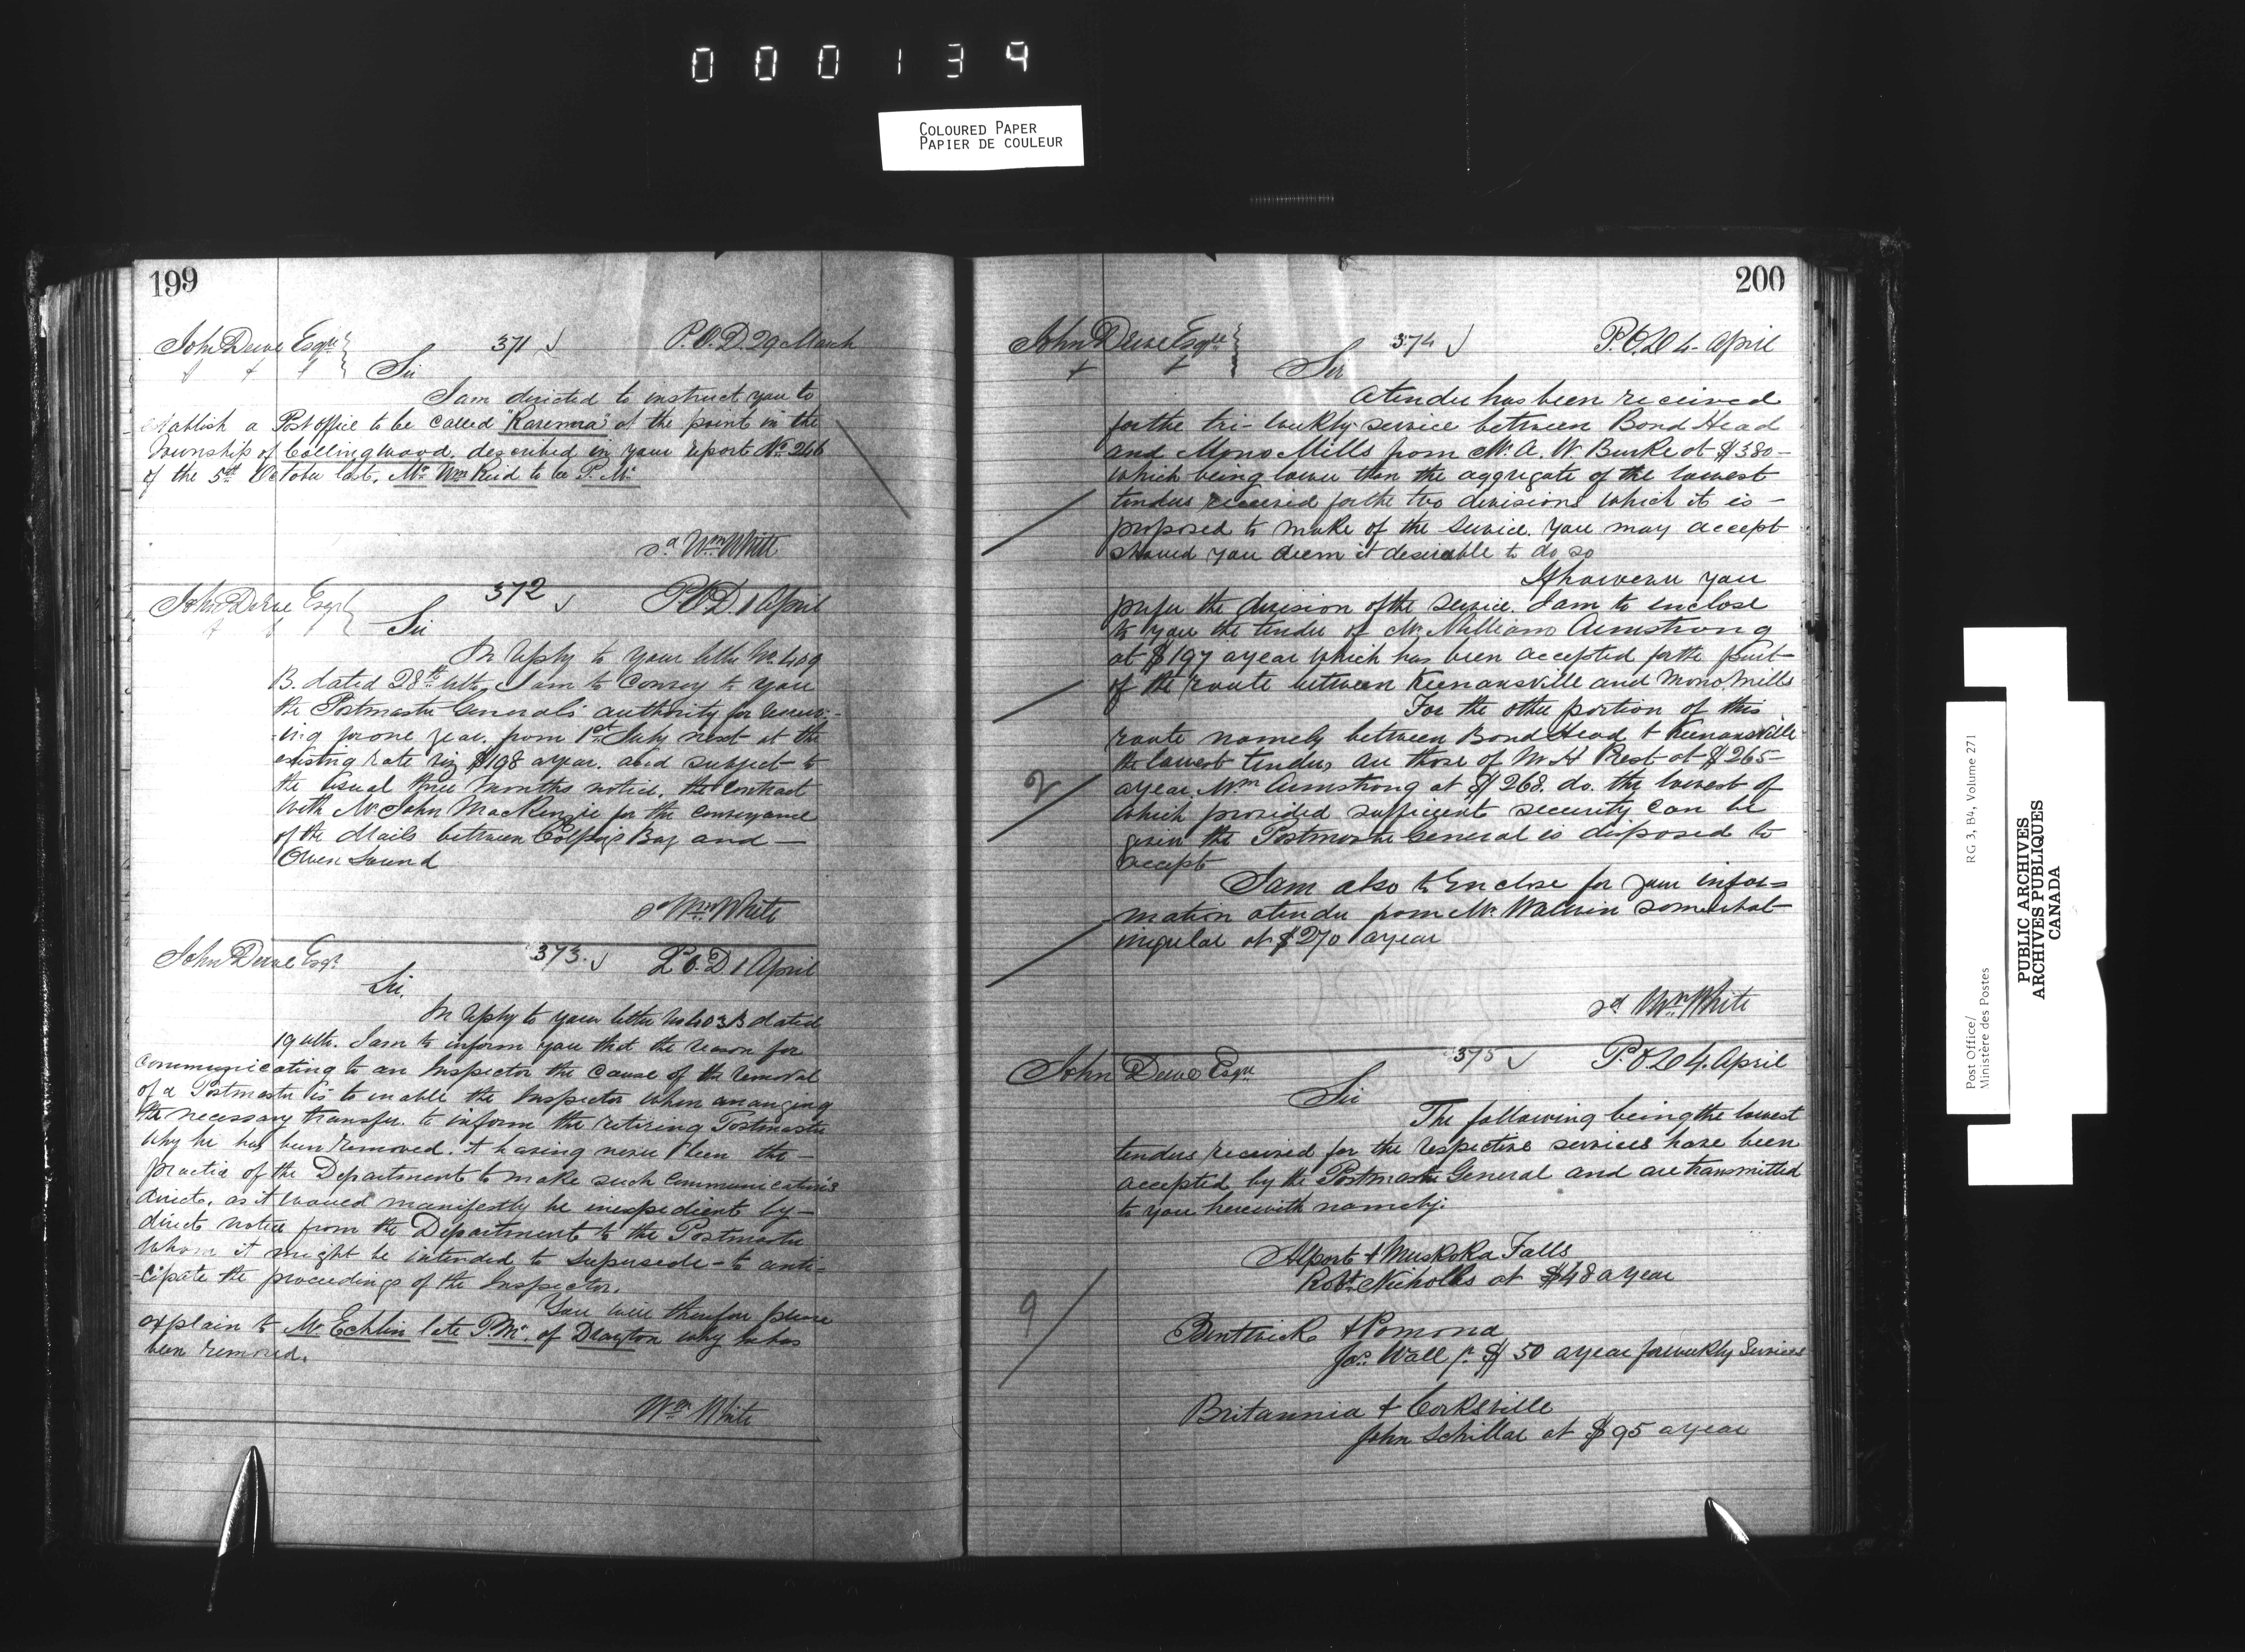 000139
COLOURED PAPER
PAPIER DE COULEUR
199
John Dewe Esqre 371 P.O.D 29 March
Sir
I am directed to instruct you to
establish a Post office to be called "Ravenna" at the point in the
Township of Collingwood, described in your report No. 246
of the 5th October last, Mr. Wm Reid to be P. Mr.
sd Wm White
John Dewe Esqr 372 P.O.D 1 April
Sir
In reply to your letter No. 409
B. dated 28th ulto, I am to convey to you
the Postmaster General's authority for renew-
-ing for one year, from 1st July next at the
existing rate viz $198 a year, and subject to
the usual three months notice, the contract
with Mr John MacKenzie for the conveyance
of the Mails between Colpoys Bay and —
Owen Sound
sd Wm White
John Dewe Esqr. 373. P.O.D 1 April
Sir,
In reply to your letter No 403 B dated
19 ulto. I am to inform you that the reason for
communicating to an Inspector the cause of the removal
of a Postmaster is to enable the Inspector when arranging
the necessary transfer, to inform the retiring Postmaster
why he has been removed. It having never been the —
practice of the Department to make such communications
direct, as it would manifestly be inexpedient by —
direct notice from the Department to the Postmaster
whom it might be intended to supersede - to anti-
-cipate the proceedings of the Inspector.
You will therefore please
explain to Mr. Echlin late P.Mr. of Drayton why he has
been removed.
Wm White
200
John Dewe Esqre 374 P.O.D 4 April
Sir
A tender has been received
for the tri-weekly service between Bond Head
and Mono Mills from Mr. A. W. Burke at $380 —
which being lower than the aggregate of the lowest
tenders received for the two divisions which it is —
proposed to make of the service. You may accept
should you deem it desirable to do so
If however you
prefer the division of the service. I am to enclose
to you the tender of Mr. William Armstrong
at $197 a year which has been accepted for the part
of the route between Keenansville and Mono Mills
For the other portion of this
route namely between Bond Head & Keenansville
the lowest tenders are those of W. H Rest at $265 —
2
a year, Wm Armstrong at $268. do. the lowest of
which provided sufficient security can be
given the Postmaster General is disposed to
accept
I am also to enclose for your infor=
mation a tender from Mr. somewhat
irregular at $270 a year
sd Wm White
John Dewe Esqre 375 P.O.D 4. April
Sir
The following being the lowest
tenders received for the respective services have been
accepted by the Postmaster General and are transmitted
to you herewith namely:
Alport & Muskoka Falls
Robt. Nicholls at $48 a year
9
Bentwick & Pomona
Jas. Wall /. $ 50 a year for weekly Services
Britannia & Cooksville
John Schillar at $95 a year
Post Office/
Ministère des Postes
RG 3, B4, Volume 271
PUBLIC ARCHIVES
ARCHIVES PUBLIQUES
CANADA